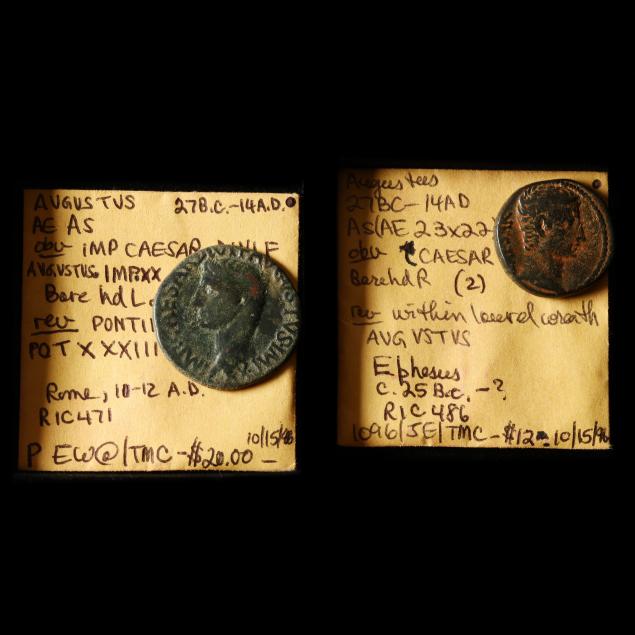 AUGUSTUS 27B.C.-14A.D.
AE AS
obv IMP CAESAR DIVI F
AVGVSTVS IMP XX
Bare hd L.
rev PONTI
POT XXXIII
Rome, 10-12 A.D.
RIC 471
10/15/96
P EW@/TMC-$20.00 -
Augustus
27BC-14AD
AS(AE 23x22
obv CAESAR
Bare hd R (2)
rev within laurel wreath
AVGVSTVS
Ephesus
c. 25 B.C.-?
RIC 486
1096/JE/TMC-$12- 10/15/96